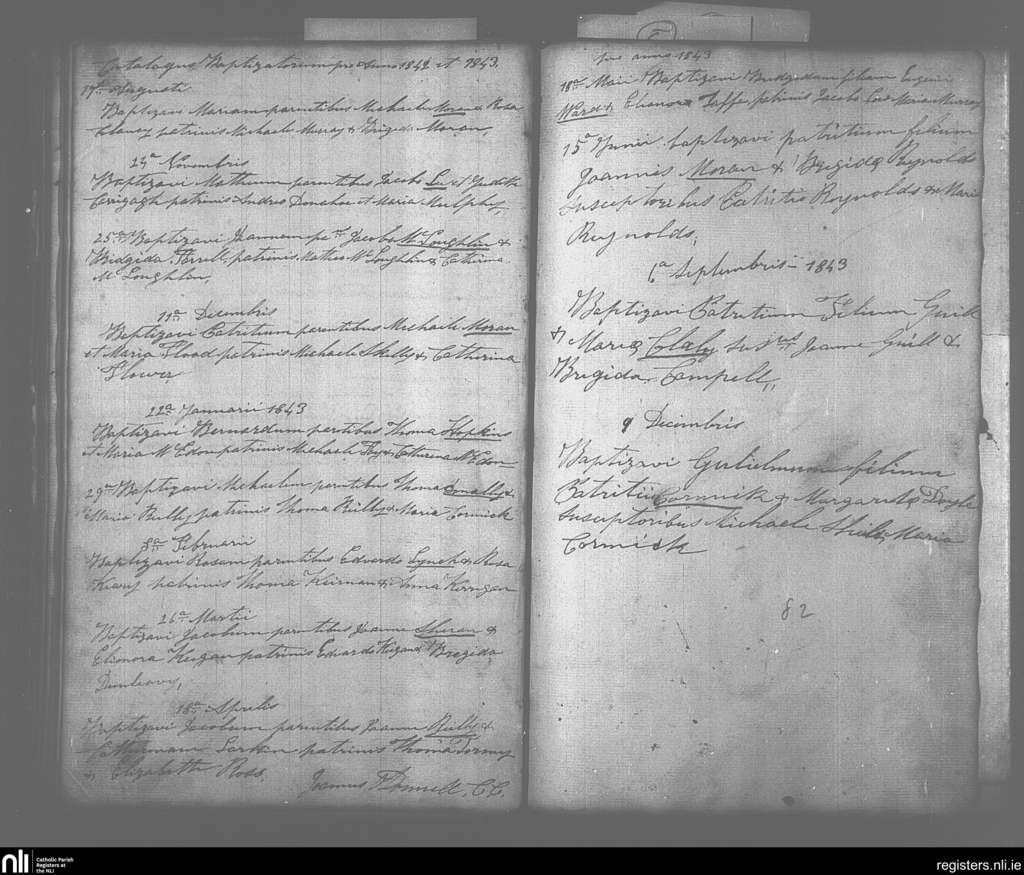 Catalogus Baptizatorum pro Anno 1842 et 1843.
17a Augusti
Baptizavi Mariam parentibus Michaele Moran & Rosa
Clancy patrinis Michaele Murray & Brigida Moran,
14a Novembris
Baptizavi Matheum parentibus Jacobo et Judith
patrinis Andrea Donahoe et Maria Mulphy,
25a Baptizavi Joannem Jacobo McLoughlin &
Bridgida Farrell, patrinis Matheo McLoughlin & Catherina
McLoughlin,
11a Decembris
Baptizavi Patritium parentibus Michaele Moran
et Maria Flood patrinis Michaele Skelly & Catherina
Flower
22a Januarii 1843
Baptizavi Bernardum parentibus Thoma Hopkins
et Maria McEdon patrinis Michaele & Catherina McEdon
29a Baptizavi Michaelem parentibus Thoma Donally &
Maria Reilly patrinis Thoma Reilly & Maria Cormick
5a Februarii
Baptizavi Rosam parentibus Edwardo Lynch & Rosa
patrinis Thoma Keirnan & Anna Kerrigan
26a Martii
Baptizavi Jacobum parentibus Joanne &
Elionora Keegan patrinis Edvardo Keegan & Bregida
Dunleavy,
18a Aprilis
Baptizavi Jacobum parentibus Joanne Reilly &
Larkin patrinis Thoma Tormy
& Elizabetha Ross.
C.C.
pro anno 1843
18a Maii Baptizavi Bridgidam filiam Eugenii
Ward & Elionora Taffe patrinis Jacobo Maria Murray
15a Junii baptizavi patritium filium
Joannis Moran & Bregida Reynolds
susceptoribus Patritio Reynolds & Maria
Reynolds,
6a Septembris - 1843
Baptizavi Patritium Filium
& Maria Joanne &
Bregida Campell,
9 Decimbris
Baptizavi Gulielmum filium
Patritii Cormick & Margareta Doyle
susceptoribus Michaele Maria
Cormick
82
nli
Catholic Parish
Registers at
the NLI
registers.nli.ie